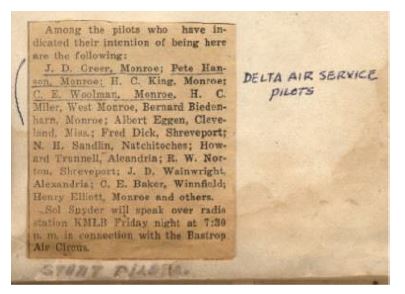 Among the pilots who have in-
dicated their intention of being here
are the following:
J. D. Greer, Monroe; Pete Han-
son, Monroe; H. C. King, Monroe;
C. E. Woolman, Monroe, H. C.
Miler, West Monroe, Bernard Bieden-
harn, Monroe; Albert Eggen, Cleve-
land, Miss.; Fred Dick, Shreveport;
N. H. Sandlin, Natchitoches; How-
ard Trunnell, Aleandria; R. W. Nor-
ton, Shreveport; J. D. Wainwright,
Alexandria; C. E. Baker, Winnfield;
Henry Elliott, Monroe and others.
Sol Snyder will speak over radio
station KMLB Friday night at 7:30
p. m. in connection with the Bastrop
Air Circus.
DELTA AIR SERVICE
PILOTS
STUNT PILOTS.